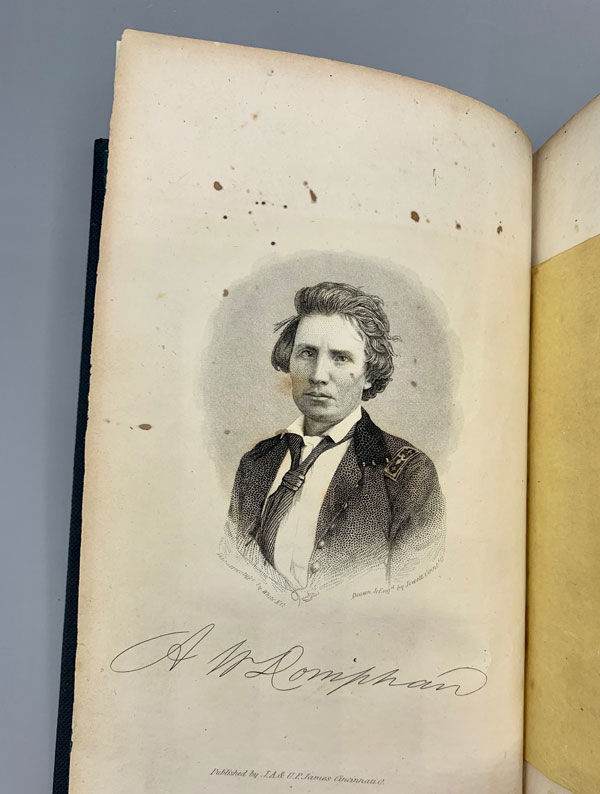 by
Drawn & Eng'd by Jewett Cinn. O.
A W Doniphan
Published by J.A. & U.P. James Cincinnati. O.